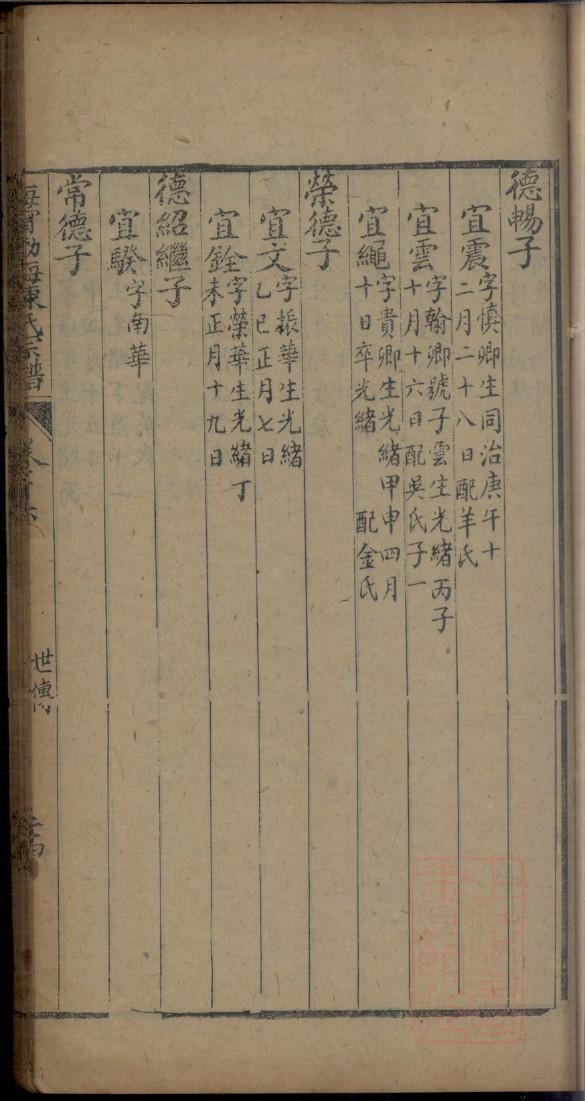 德暢子
宜震字慎卿生同治庚午十
二月二十八日配羊氏
宜雲字翰卿號子雲生光緒丙子
十月十六日配吳氏子一
宜繩字貴卿生光緒甲申四月
十日卒光緒 配金氏
榮德子
宜文字振華生光緒
乙巳正月七日
宜銓字榮華生光緒丁
未正月十九日
德紹繼子
宜騤字南華
常德子
海寧渤海陳氏宗譜
世傳